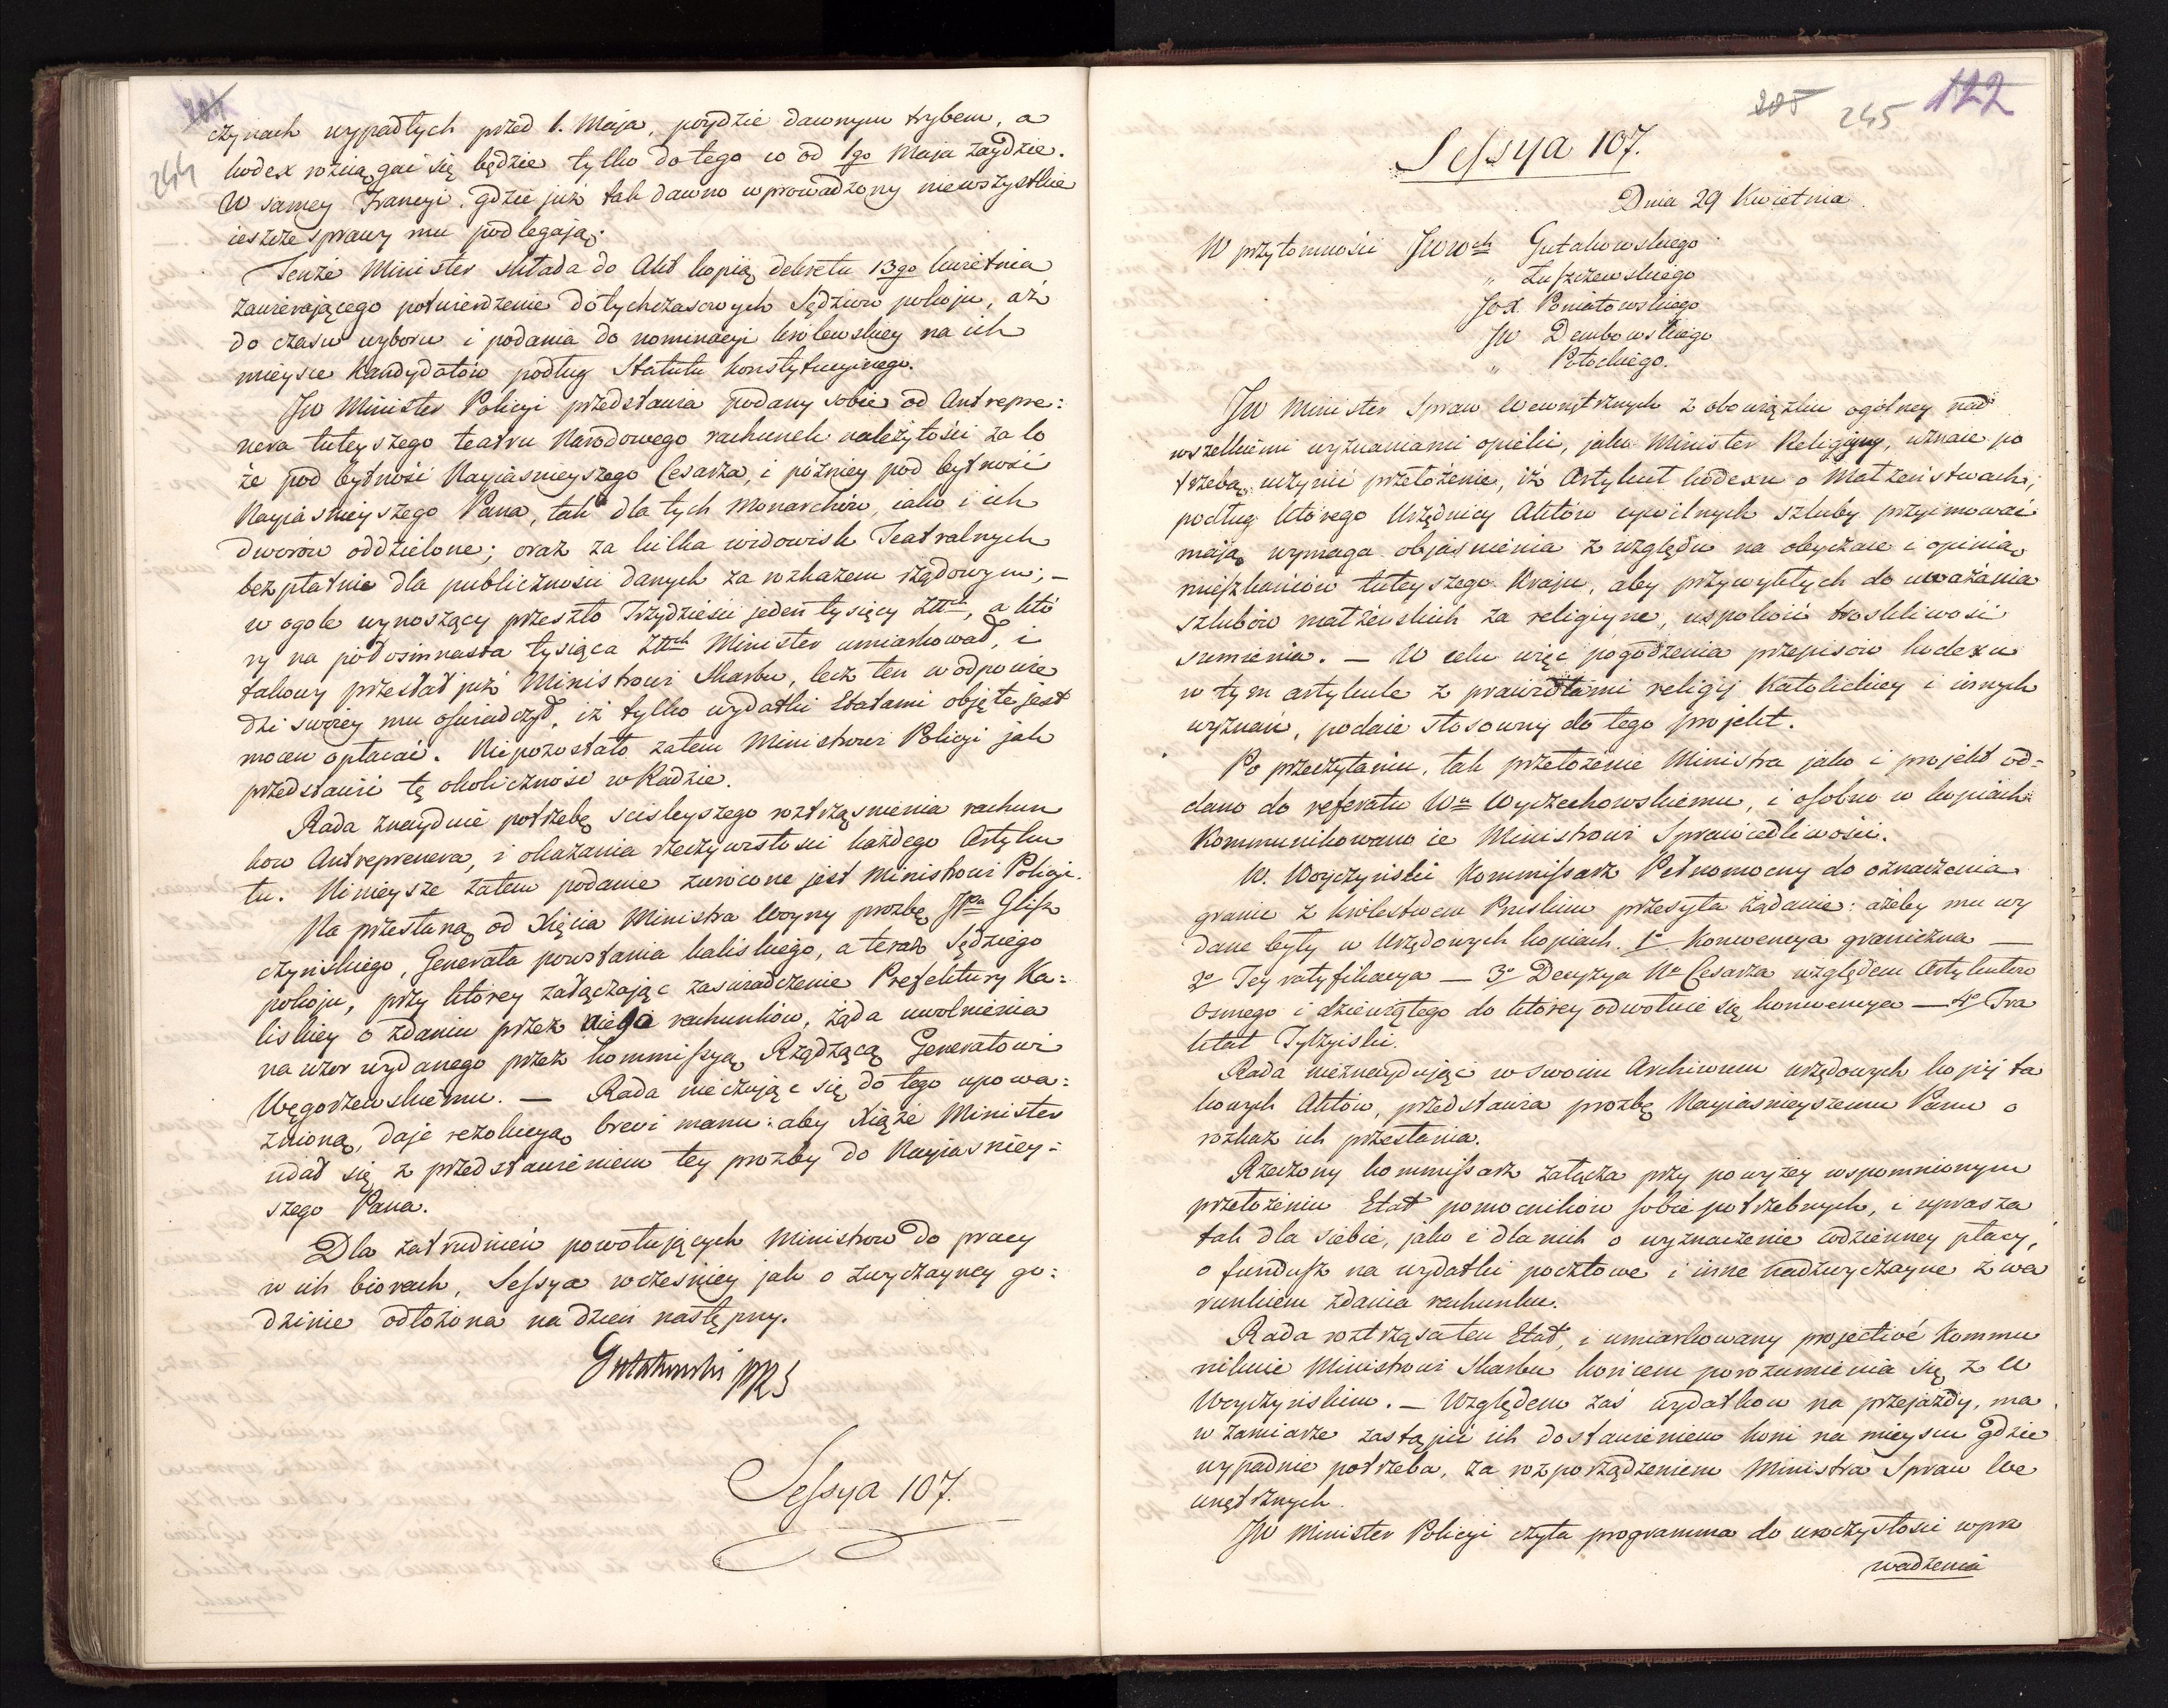 204
244
czynach wypadłych przed 1. Maja, poydzie dawnym trybem, a
kodex rozciągać się będzie tylko do tego co od 1go Maja zaydzie.
W samey Francyi gdzie już tak dawno wprowadzony niewszystkie
ieszcze sprawy mu podlegają.
Tenże Minister składa do Akt kopią dekretu 13go kwietnia
zawierającego potwierdzenie dotychczasowych Sędziow pokoju, aż
do czasu wyboru i podania do nominacyi krolewskiey na ich
mieysce Kandydatów podług Statutu konstytucyinego.
JW Minister Policyi przedstawia podany sobie od Antrepre:
nera tuteyszego teatru Narodowego rachunek należytości za lo
że pod bytność Nayiasnieyszego Cesarza, i pózniey pod bytność
Nayiasnieyszego Pana, tak dla tych Monarchów, iako i ich
dworów oddzielone; oraz za kilka widowisk Teatralnych
bezpłatnie dla publiczności danych za rozkazem rządowym; —
w ogole wynoszący przeszło Trzydzieści jeden tysięcy Złłch, a któ
ry na pół osimnasta tysiąca Złłch Minister umiarkował, i
takowy przesłał już Ministrowi Skarbu, lecz ten w odpowie
dzi swoiey mu oświadczył, iż tylko wydatki Etatami objęte jest
mocen opłacać. Niepozostało zatem Ministrowi Policyi jak
przedstawić tę okoliczność w Radzie.
Rada znayduie potrzebę scisleyszego roztrząsnienia rachun
kow Antreprenera, i okazania rzeczywistości każdego Artyku
łu. Ninieysze zatem podanie zwrócone jest Ministrowi Policyi.
Na przesłaną od Xięcia Ministra Woyny prozbę JPa Glisz
czyńskiego, Generała powstania kaliskiego, a teraz Sędziego
pokoju, przy którey załączając zaświadczenie Prefektury Ka:
liskiey o zdaniu przez niego rachunków, żąda uwolnienia
na wzor wydanego przez Kommissyą Rządzącą Generałowi
Węgorzewskiemu. — Rada nieczując się do tego upowa:
żnioną, daje rezolucyą brevi manu: aby Xiąże Minister
udał się z przedstawieniem tey prozby do Nayiasniey:
szego Pana.
Dla zatrudnień powołujących Ministrow do pracy
w ich biorach, Sessya wcześniey jak o zwyczayney go:
dzinie odłożona na dzień następny.
Gutakowski PRS
Sessya 107.
205
245
122
Sessya 107.
Dnia 29 Kwietnia.
W przytomności JWWch Gutakowskiego
" Łuszczewskiego
JOX. Poniatowskiego
JW Dembowskiego
" Potockiego.
JW Minister Spraw Wewnętrznych z obowiązku ogólney nad
wszelkiemi wyznaniami opieki, jako Minister Religijny, uznaie po
trzebą uczynić przełożenie, iż Artykuł kodexu o Małżeństwach,
podług którego Urzędnicy Aktów cywilnych szluby przyimować
mają, wymaga objaśnienia z względu na obyczaie i opinią
mieszkańców tuteyszego Kraju, aby przywykłych do uważania
szlubów małżeńskich za religiyne, uspokoić troskliwość
sumienia. — W celu więc pogodzenia przepisów kodexu
w tym artykule z prawidłami religij Katolickiey i innych
wyznań, podaie stosowny do tego projekt.
Po przeczytaniu, tak przełożenie Ministra jako i projekt od=
dano do referatu Wu Wyczechowskiemu, i osobno w kopiach
Kommunikowano ie Ministrowi Sprawiedliwości.
W. Woyczyński Kommissarz Pełnomocny do oznaczenia
granic z królestwem Pruskim przesyła żądanie: ażeby mu wy
dane były w Urzędowych kopiach. 1o Konwencya graniczna —
2o Jey ratyfikacya — 3o Decyzya No Cesarza względem Artykułow
osmego i dziewiątego do którey odwołuie się konwencya — 4o Tra
ktat Tylżyiski.
Rada nieznaydując w swoim Archiwum urzędowych kopij ta
kowych Aktów, przedstawia prozbę Nayiasnieyszemu Panu o
rozkaz ich przesłania.
Rzeczony kommissarz załącza przy powyżey wspomnionym
przełożeniu Etat pomocników sobie potrzebnych, i uprasza
tak dla siebie, jako i dla nich o wyznaczenie codzienney płacy,
o fundusz na wydatki pocztowe i inne nadzwyczayne z wa
runkiem zdania rachunku.
Rada roztrząsa ten Etat, i umiarkowany projective kommu
nikuie Ministrowi Skarbu końcem porozumienia się z W
Woyczyńskim. — Względem zaś wydatkow na przejazdy, ma
w zamiarze zastąpić ich dostawieniem koni na mieyscu gdzie
wypadnie potrzeba, za rozporządzeniem Ministra Spraw We
wnętrznych.
JW Minister Policyi czyta programma do uroczystości wpro
wadzenia